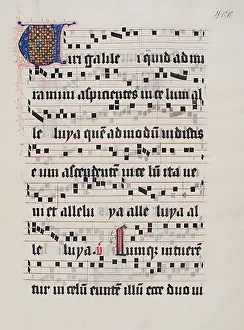 466
Viri galilei quid admi
ramini aspicientes in celum al
le luya quē admodū uidistis
eum ascendentem in celū ita ue
ni et allelu ya alle luya al
le luya. ℣ Cumq; intueren
tur in celū euntē illū ecce duo ui